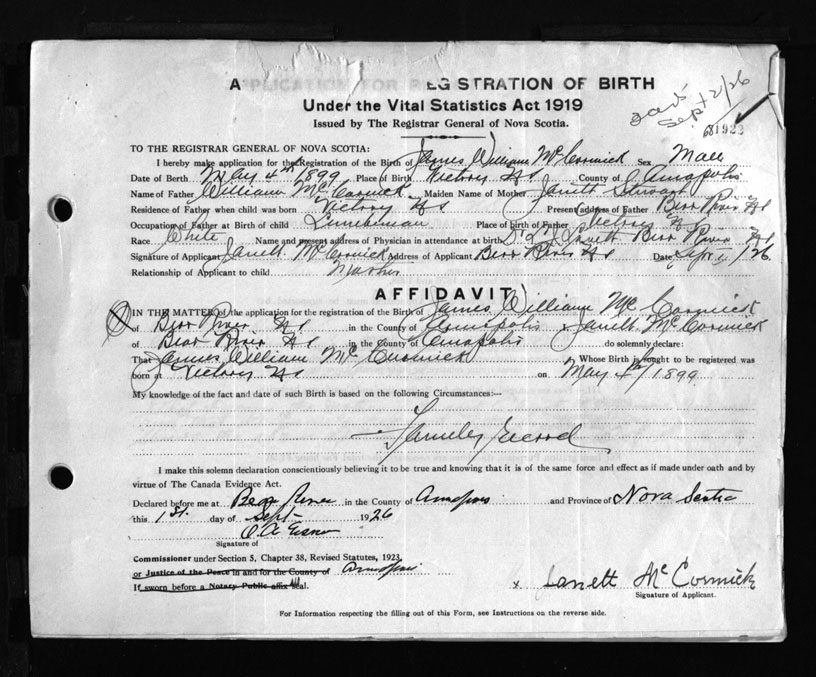 A EGISTRATION OF BIRTH
Under the Vital Statistics Act 1919
Issued by The Registrar General of Nova Scotia.
Sept 2/26
1922
TO THE REGISTRAR GENERAL OF NOVA SCOTIA:
I hereby make application for the Registration of the Birth of James William McCormick Sex Male
Date of Birth May 4th 1899 Place of Birth Victory NS County of Annapolis
Name of Father William McCormick Maiden Name of Mother Janett Stewart
Residence of Father when child was born Victory NS Present address of Father Bear River NS
Occupation of Father at Birth of child Lumberman Place of birth of Father Victory NS
Race White Name and present address of Physician in attendance at birth Bear River NS
Signature of Applicant Janett McCormick Address of Applicant Bear River NS Date Sept 1/26
Relationship of Applicant to child Mother
AFFIDAVIT
IN THE MATTER of the application for the registration of the Birth of James William McCormick
of Bear River NS in the County of Annapolis Janett McCormick
of Bear River NS in the County of Annapolis do solemnly declare:
That James William McCormick Whose Birth is sought to be registered was
born at Victory NS on May 4th/1899
My knowledge of the fact and date of such Birth is based on the following Circumstances:--
Family Record
I make this solemn declaration conscientiously believing it to be true and knowing that it is of the same force and effect as if made under oath and by
virtue of The Canada Evidence Act.
Declared before me at Bear River in the County of Annapolis and Province of Nova Scotia
this 1st. day of Sept 1926
Signature of
Commissioner under Section 5, Chapter 38, Revised Statutes, 1923,
or Justice of the Peace in and for the County of Annapolis
If sworn before a Notary Public affix seal.
x Janett McCormick
Signature of Applicant.
For Information respecting the filling out of this Form, see Instructions on the reverse side.